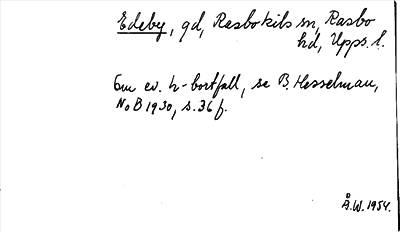 Edeby, gd, Rasbokils sn, Rasbo
hd, Upps. l.
Om ev. h-bortfall, se B. Hesselman,
NoB 1930, s. 36 f.
Å.W. 1954.